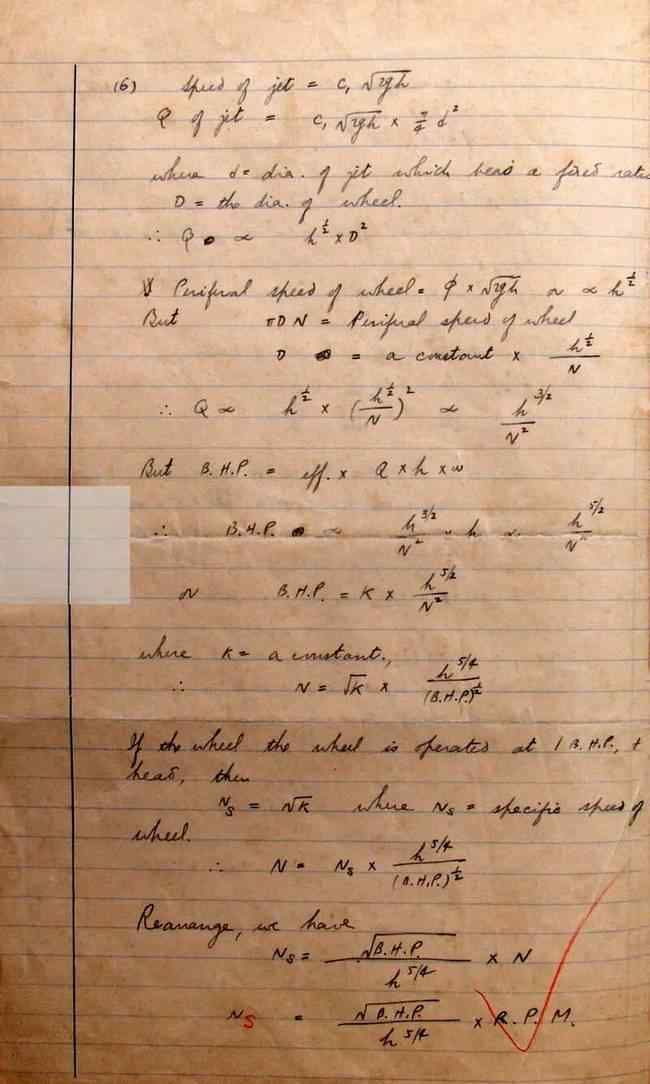 (6) Speed of jet = C, √2gh
Q of jet = C, √2gh × π/4 d²
where d = dia. of jet which bears a fixed ratio
D = the dia. of wheel.
∴ Q ∝ h^½ × D²
Perifral speed of wheel = φ × √2gh or ∝ h^½
But πDN = Perifral speed of wheel
D = a constant × h^½/N
∴ Q ∝ h^½ × (h^½/N)² ∝ h^3/2/N²
But B.H.P. = eff. × Q × h × w
∴ B.H.P. ∝ h^3/2/N² × h ∝ h^5/2/N²
or B.H.P. = K × h^5/2/N²
where K = a constant.,
∴ N = √K × h^5/4/(B.H.P.)^½
If the wheel the wheel is operated at 1 B.H.P.,
head, then
Ns = √K where Ns = specific speed of
wheel.
∴ N = Ns × h^5/4/(B.H.P.)^½
Rearrange, we have
Ns = √B.H.P./h^5/4 × N
Ns = √B.H.P./h^5/4 × R.P.M.